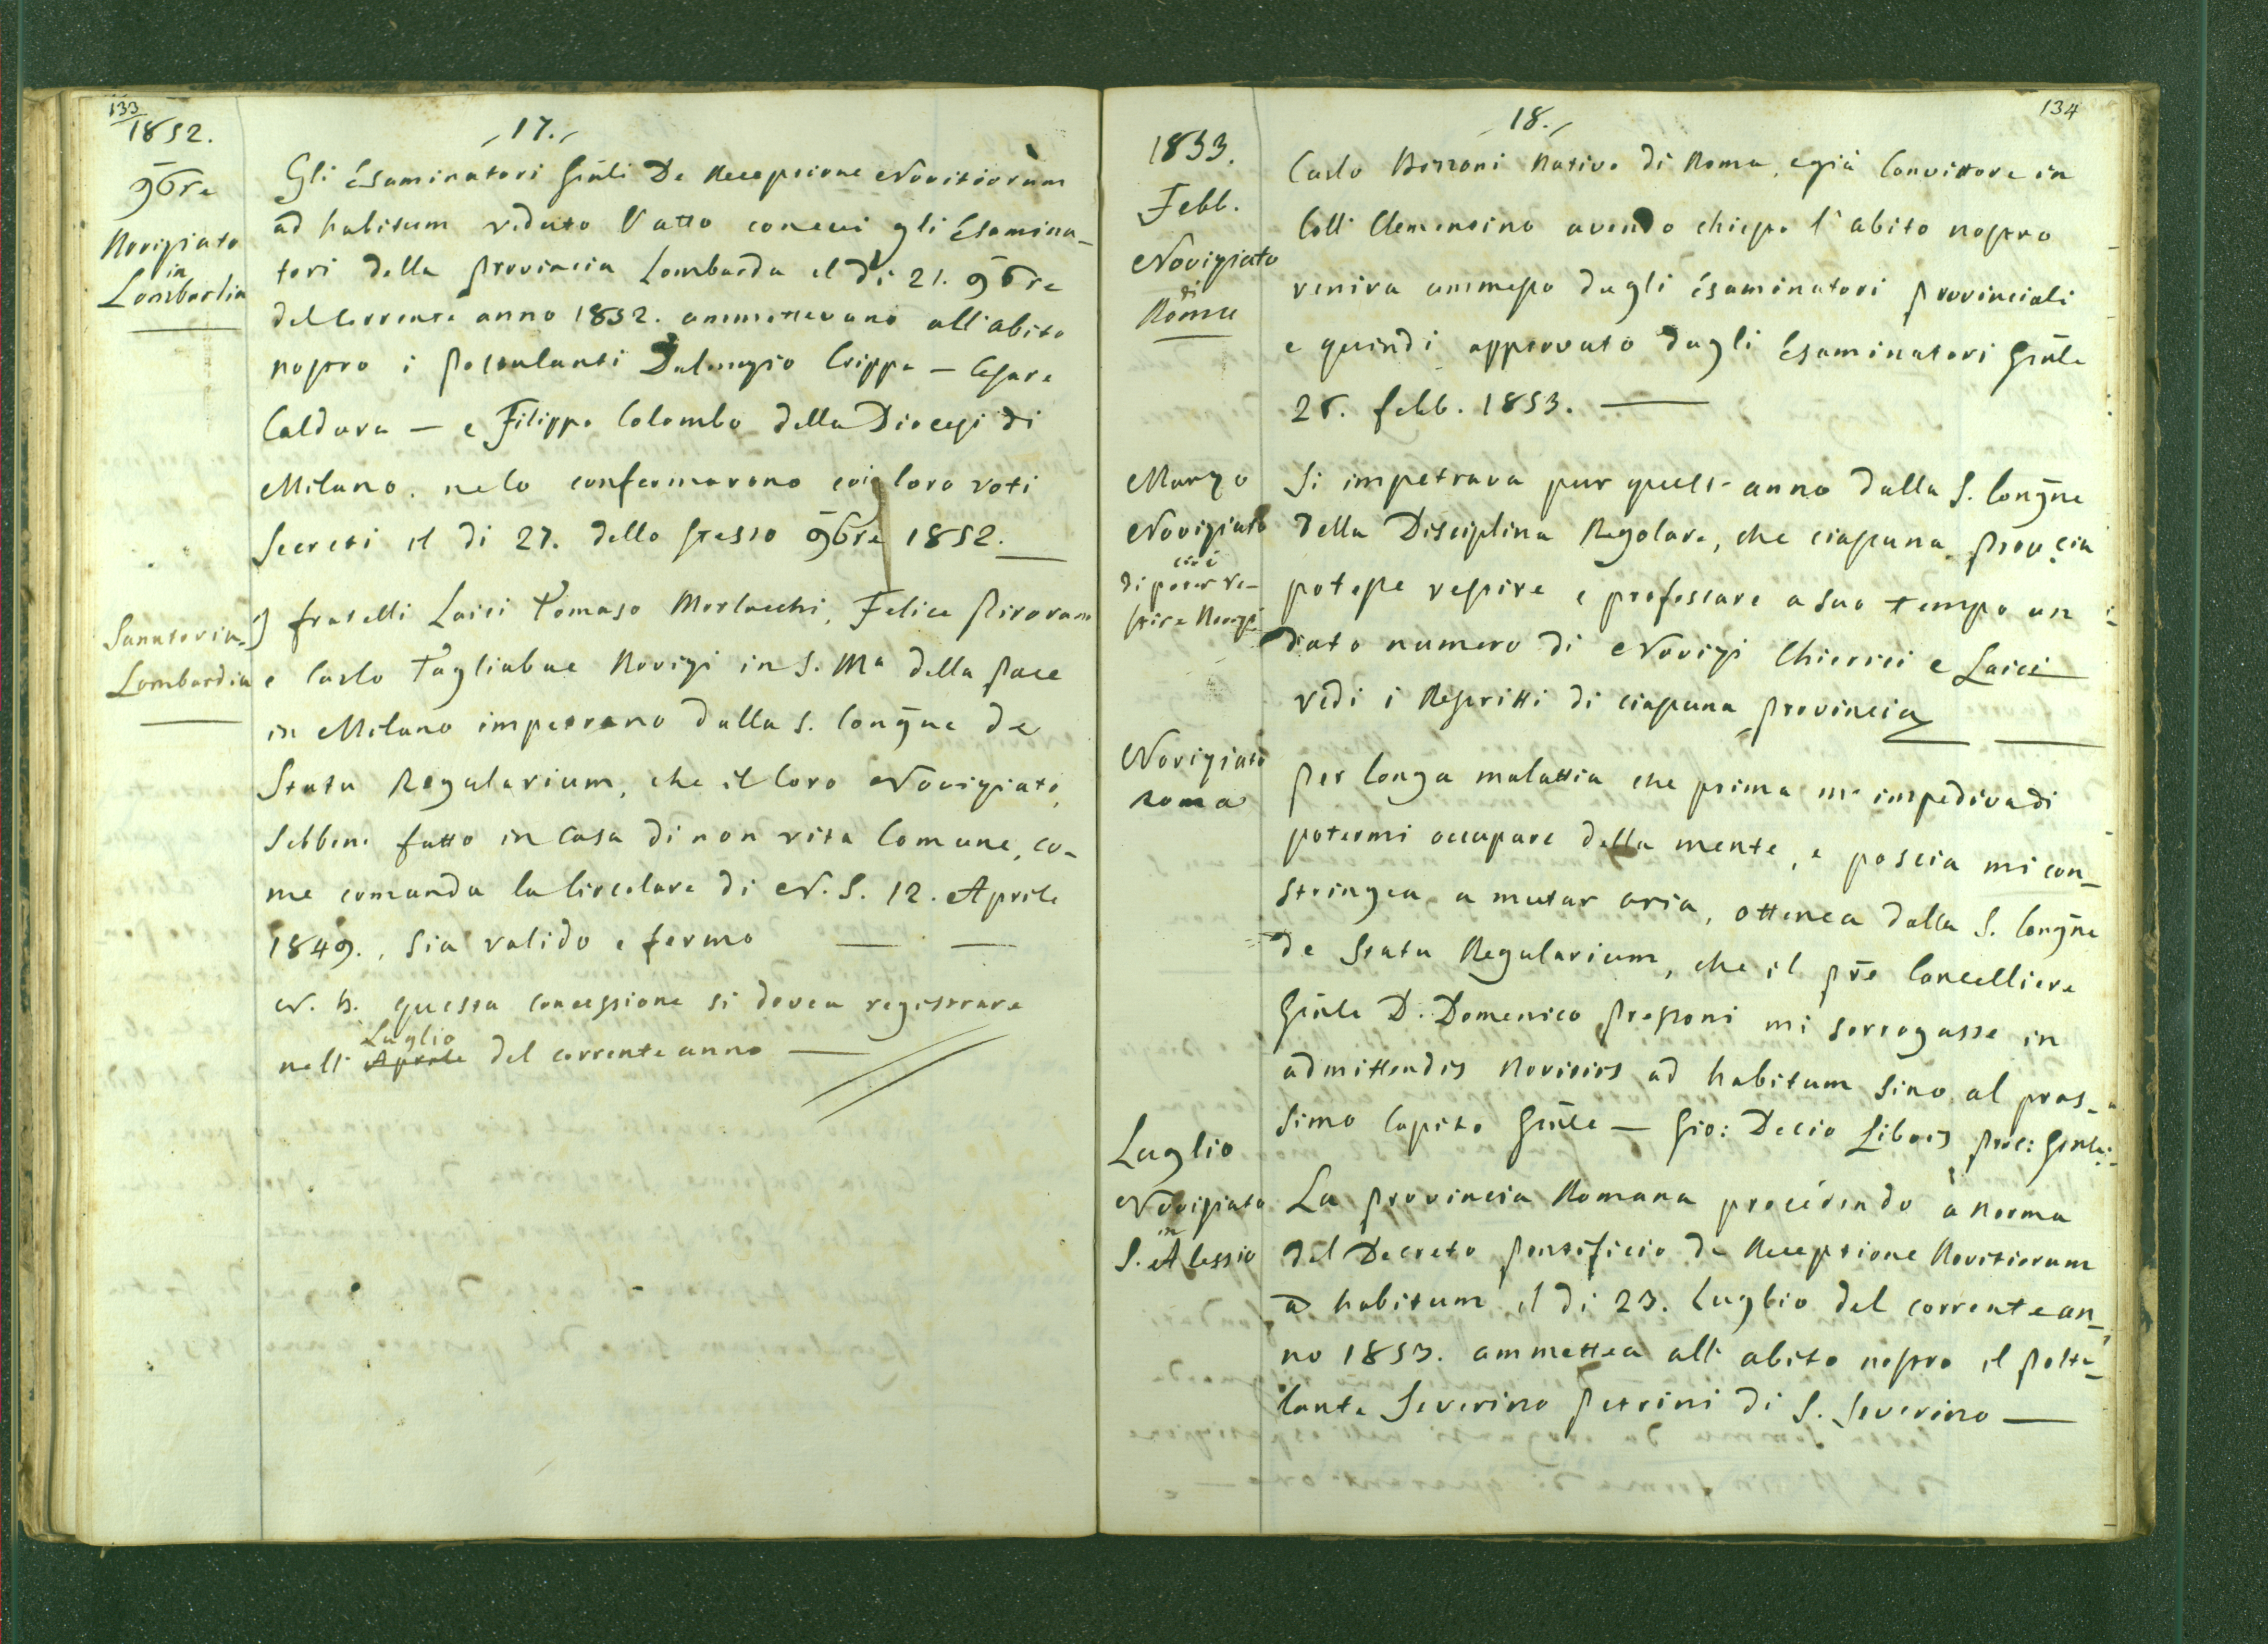 133
1852.
17.
9bre
Noviziato
in
Lombardia
Gli Esaminatori Gñli De Receptione Novitiorum
ad habitum veduto l'atto con cui gli Esamina-
tori della Provincia Lombarda il dì 21. 9bre
del corrente anno 1852. ammettevano all'abito
nostro i Postulanti Dalmazio Crippa — Cesare
Caldara — e Filippo Colombo della Diocesi di
Milano. ne lo confermarono coi loro voti
Secreti il di 27. dello stesso 9bre 1852.
Sanatoria
Lombardia
I fratelli Laici Tomaso Morlacchi, Felice Pirovano
e Carlo Tagliabue Novizi in S. Ma della Pace
in Milano impetrano dalla S. Congne de
Statu Regularium, che il loro Noviziato,
Sebbene fatto in Casa di non vita Comune, co-
me comanda la Circolare di N. S. 12. Aprile
1849., sia valido e fermo
N. B. questa concessione si dovea registrare
Luglio
nell' Aprile del corrente anno —
134
18.
1853.
Febb.
Noviziato
di
Roma
Carlo Nativo di Roma, e già Convittore in
Coll. Clementino avendo chiesto l'abito nostro
veniva ammesso dagli Esaminatori Provinciali
e quindi approvato dagli Esaminatori Gñle
febb. 1853. —
Marzo
Noviziato
cioè
di poter ve-
stire Novizi
Si impetrava pur quest' anno dalla S. Congne
della Disciplina Regolare, che ciascuna Provcia
potesse vestire e professare a suo tempo un
dato numero di Novizi Chierici e Laici
vedi i Rescritti di ciascuna Provincia
Noviziato
Roma
Per longa malattia che prima m' impediva di
potermi occupare della mente, e poscia mi con-
stringea a mutar aria, ottenea dalla S. Congne
de Statu Regularium, che il Pre Cancelliere
Gñle D. Domenico Pressoni mi sorrogasse in
admittendis Novitiis ad habitum sino al pros-
simo Capito Gñle — Gio: Decio Libois Proc: Gñle
Luglio
Noviziato
in
S. Alessio
La Provincia Romana procedendo a norma
del Decreto Pontificio de Receptione Novitiorum
ad habitum il di 23. Luglio del corrente an-
no 1853. ammettea all' abito nostro il Postu-
lante Severino Petrini di S. Severino —